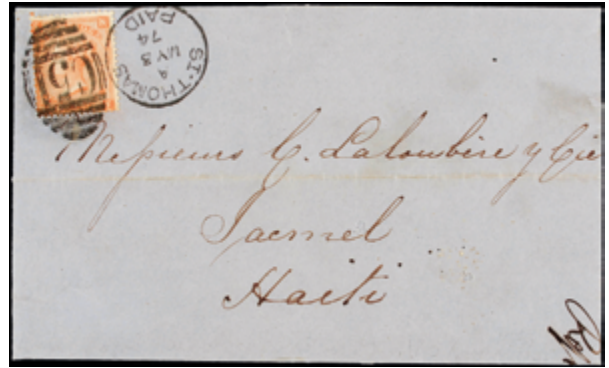 ST. THOMAS
A
MY 3
74
PAID
C51
Messieurs C. Laloubère y Cie
Jacmel
Haiti